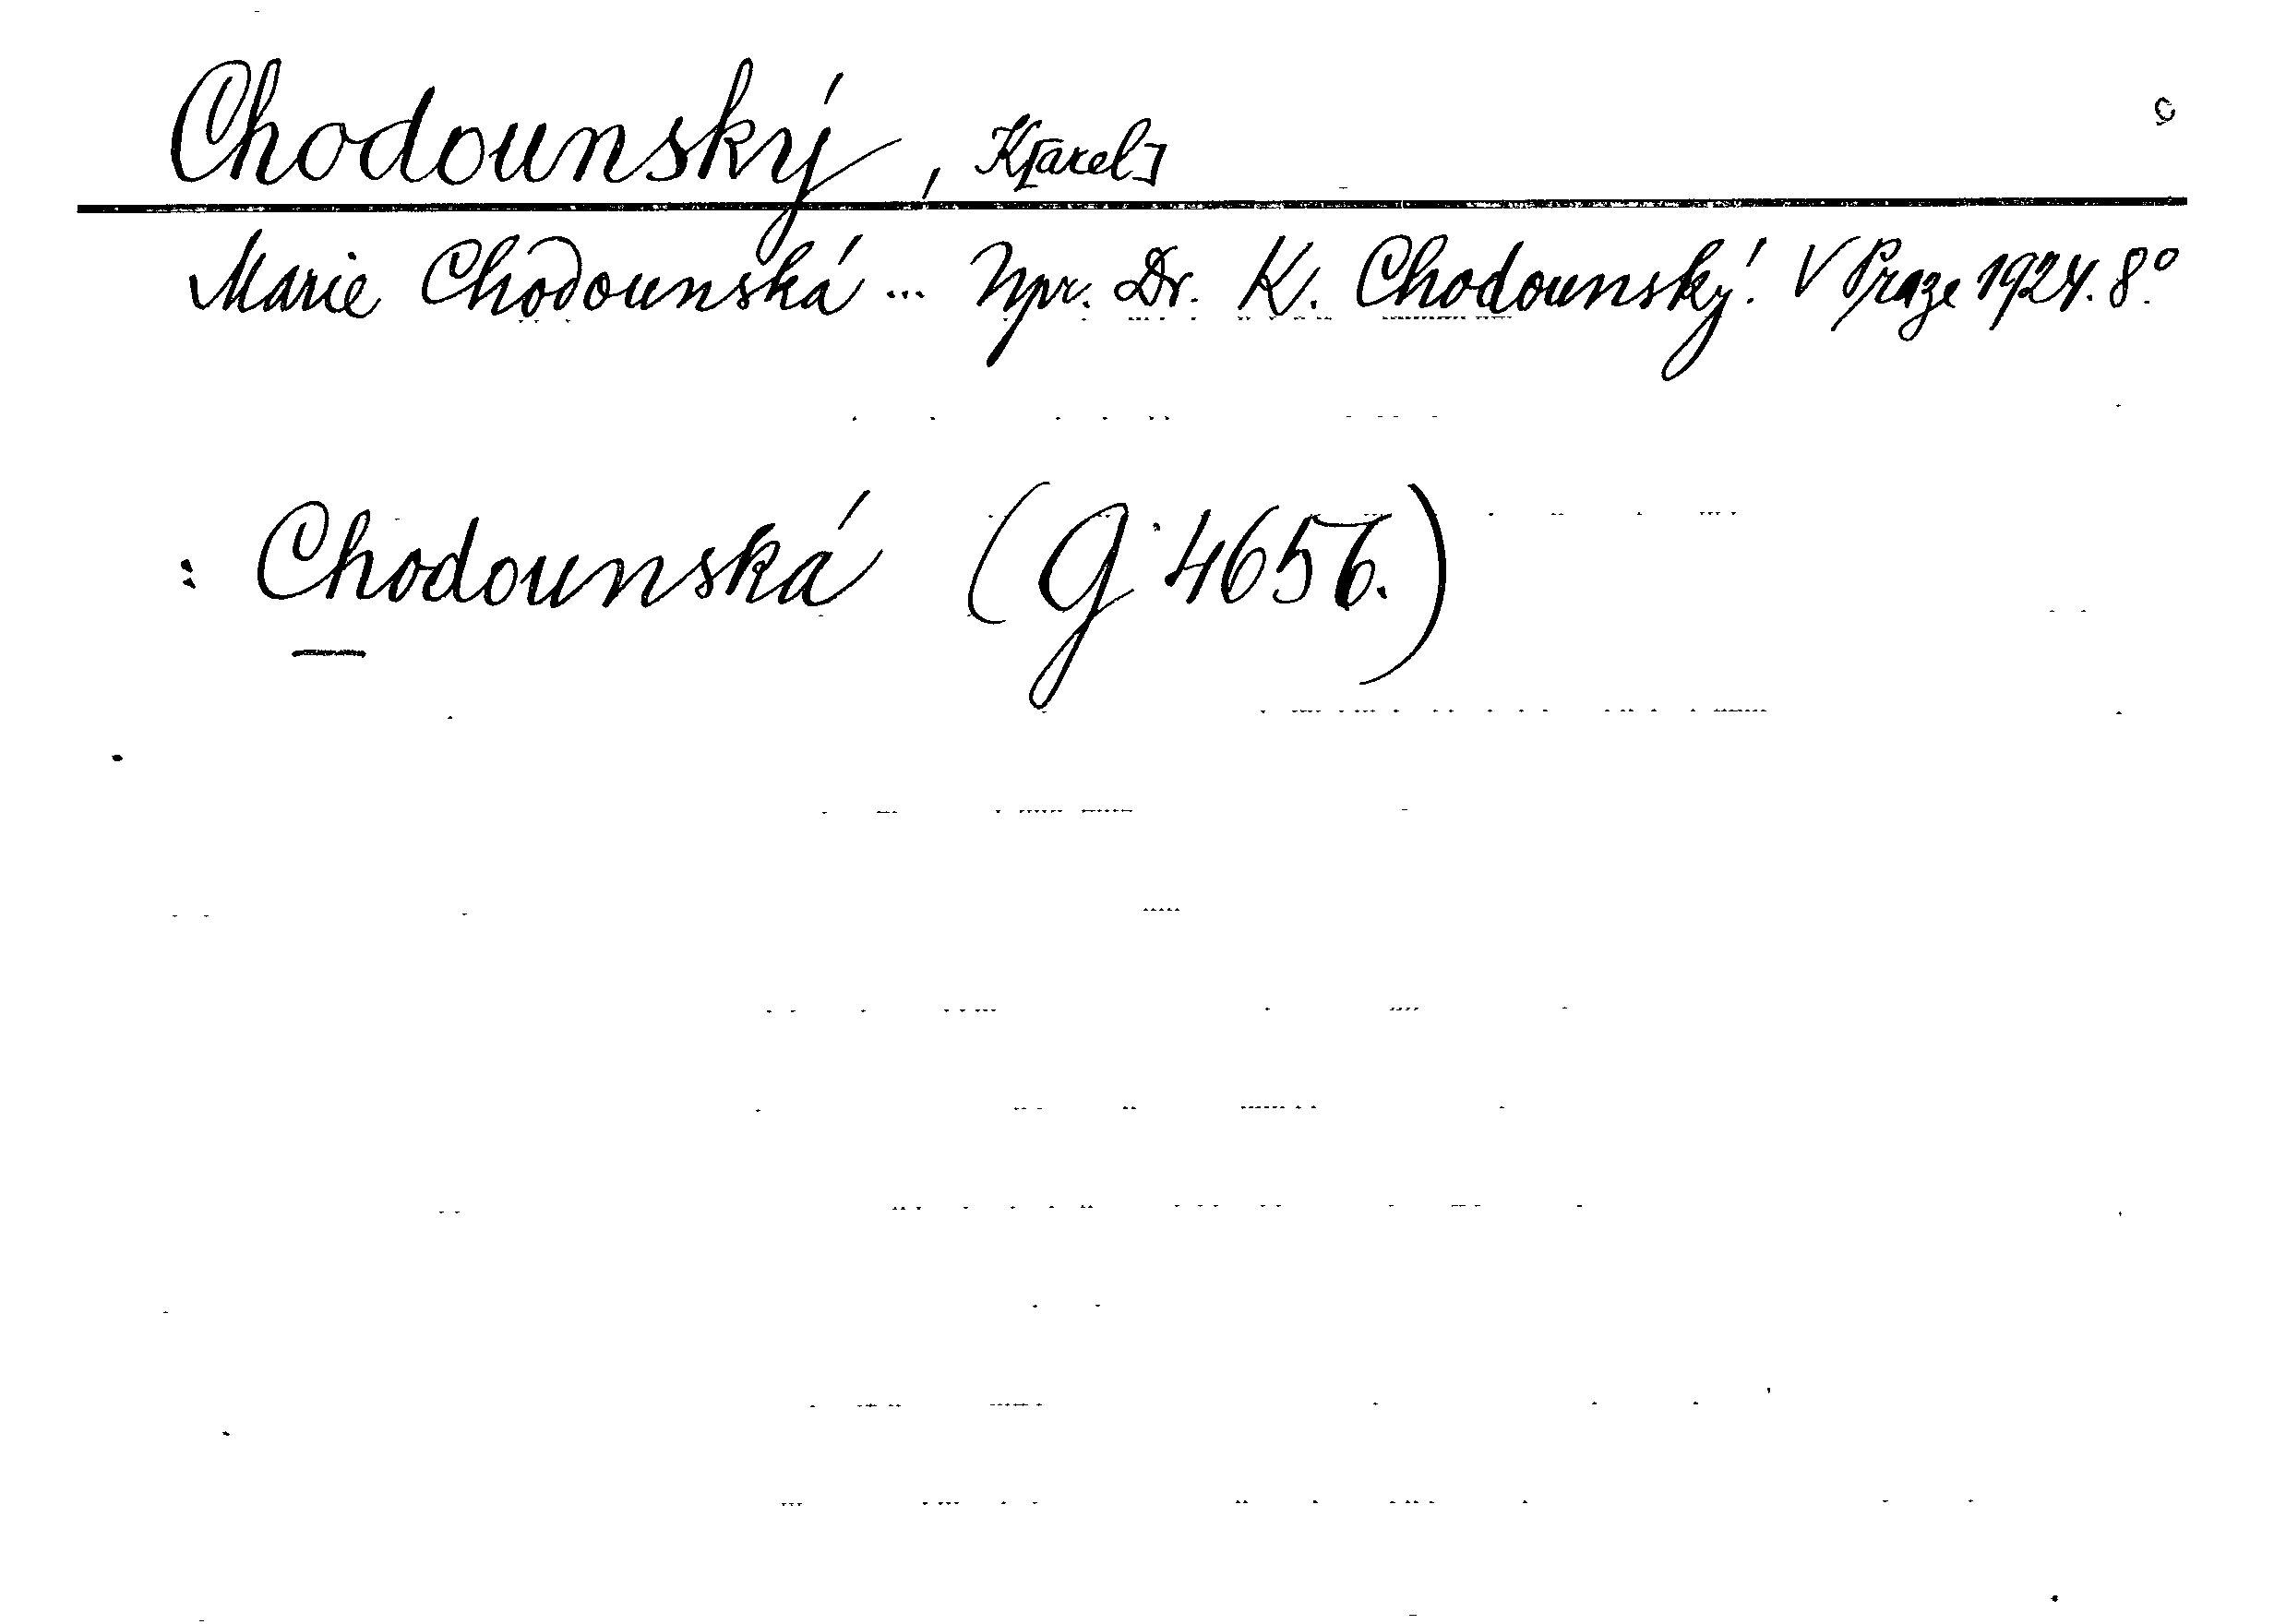 Chodounský, K[arel]
Marie Chodounská ... Npr. Dr. K. Chodounský. V Praze 1924. 8°
: Chodounská (G 4656.)